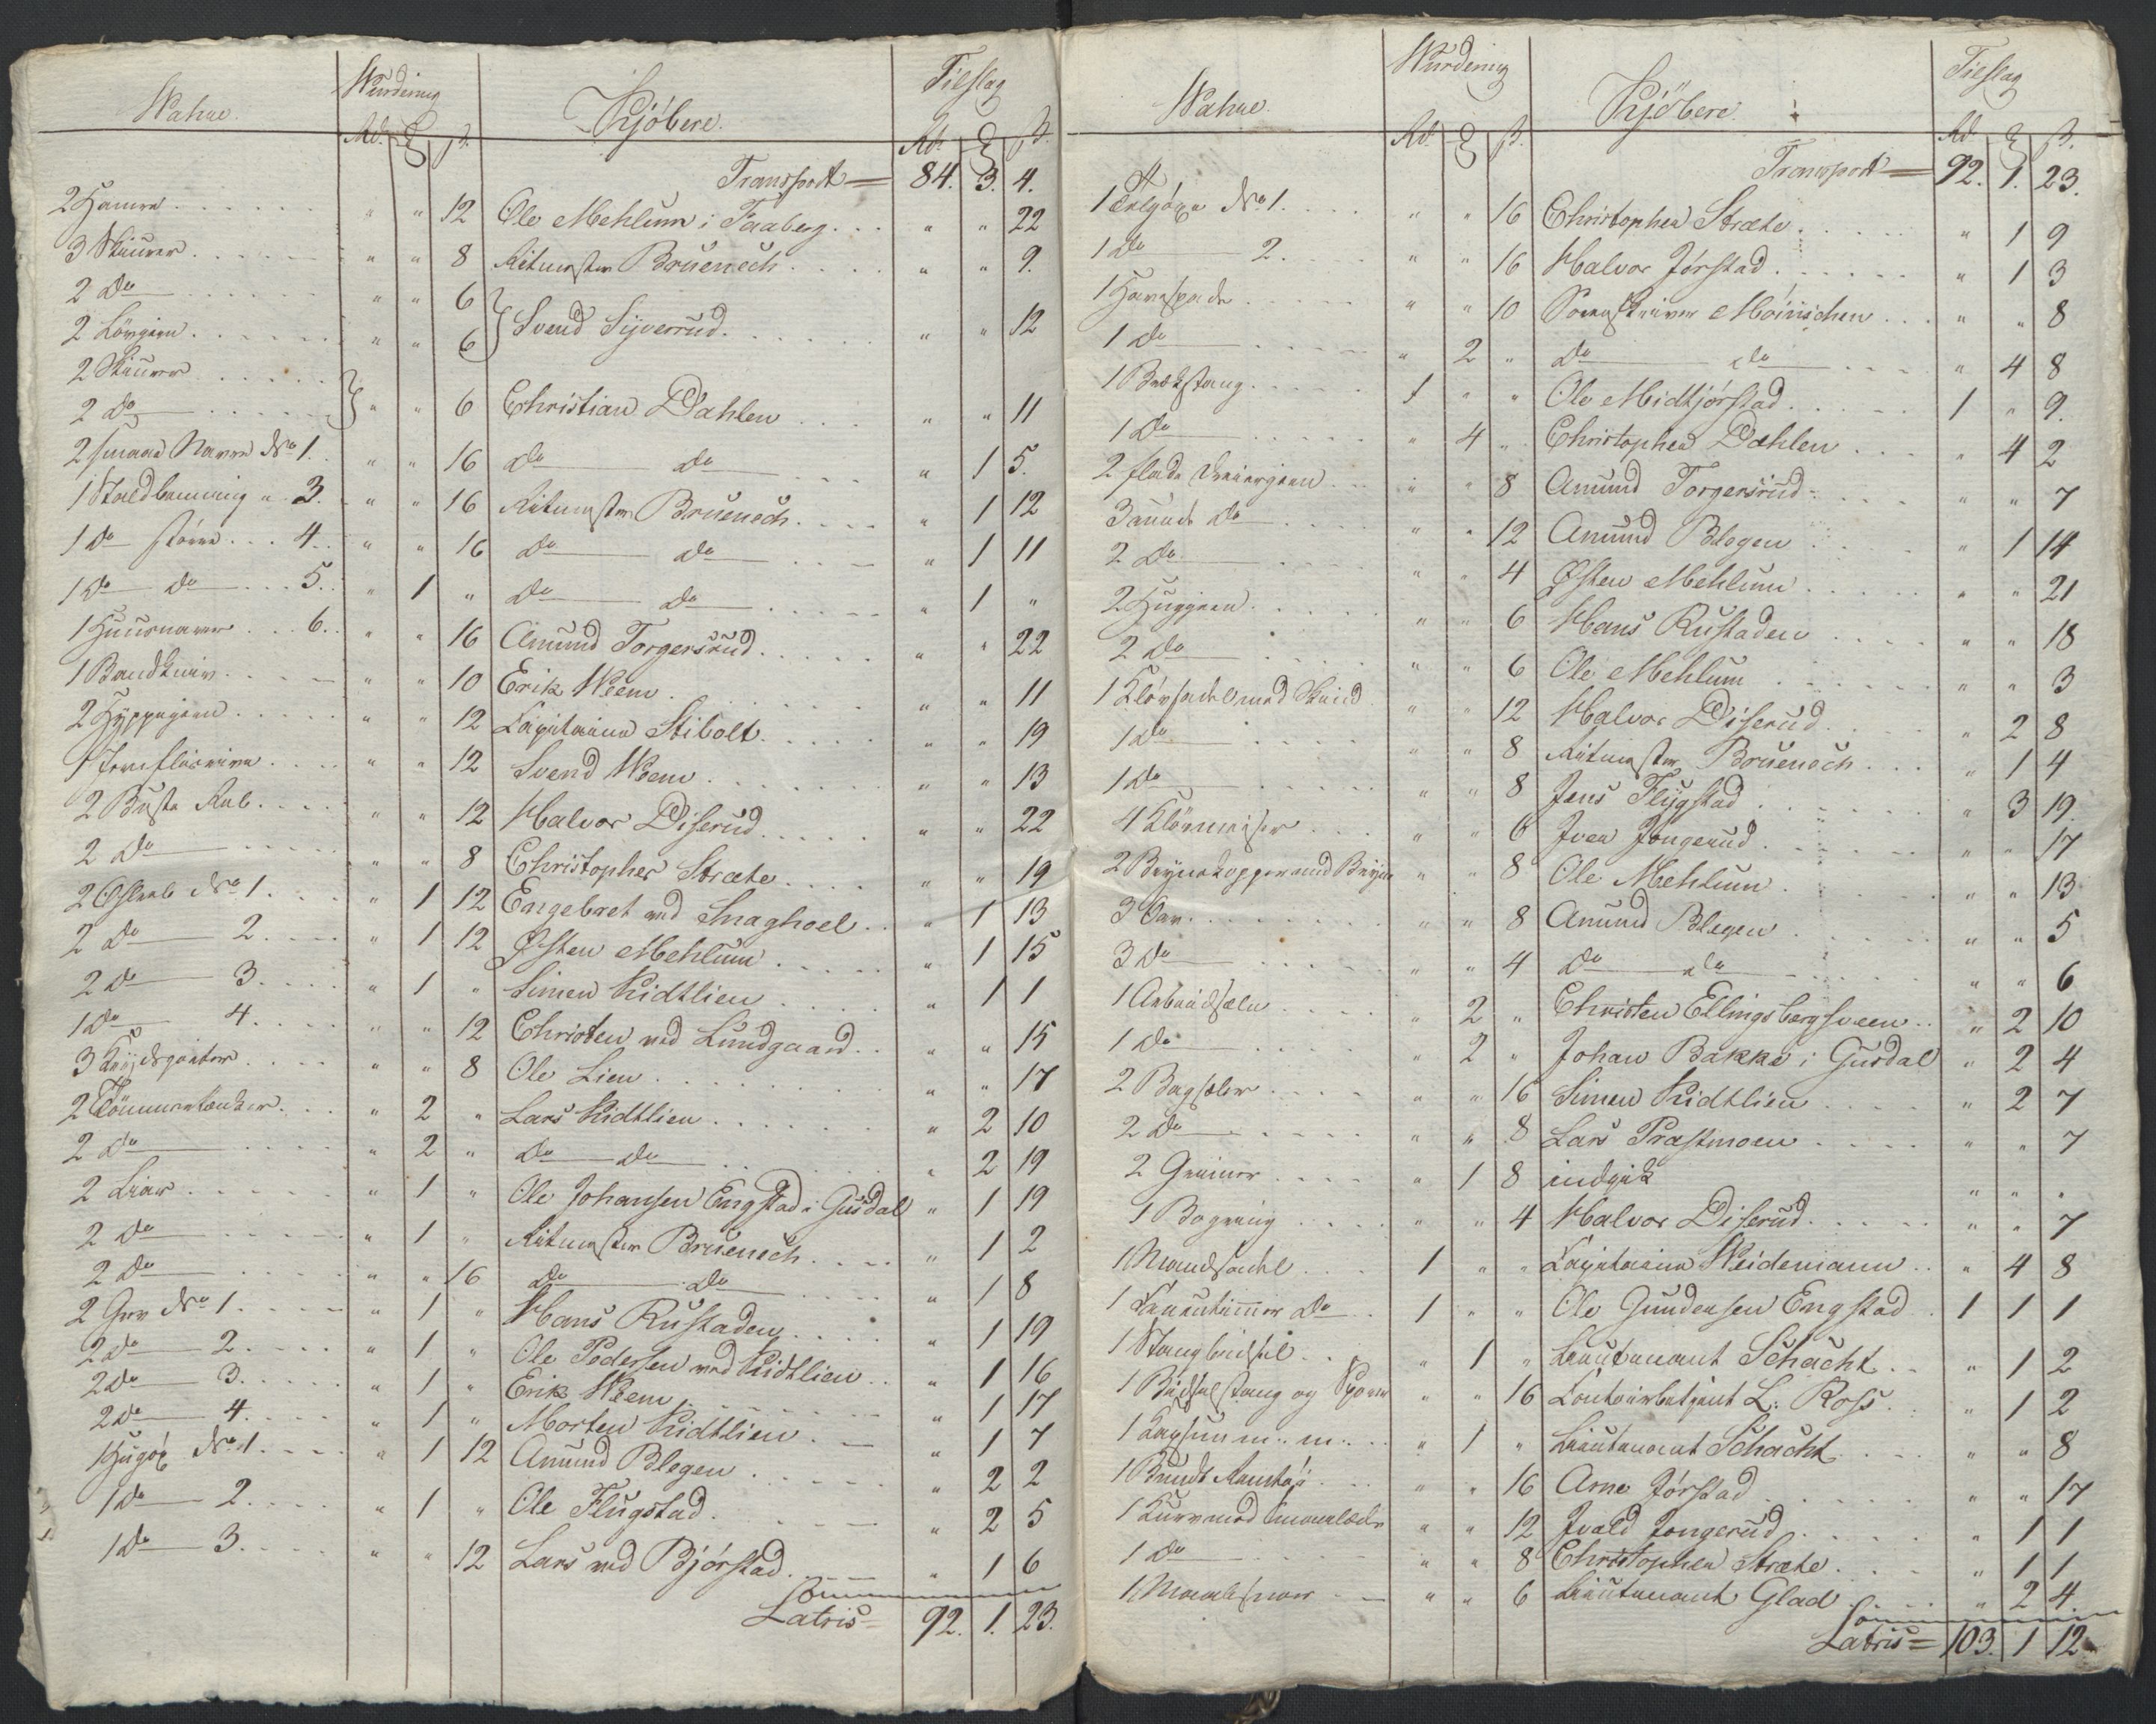 Wahne. Wurdering Kjöbere. Tilslag
Rd. ß. Rd. ß.
Transport = 84. 3. 4.
2 Hamre " " 12 Ole Mehlum i Faaberg " " 22
3 Skaurer " " 8 Ritmester Brüenech " " 9.
2 do " " 6
2 Lövjern " " 6 Svend Sÿverrud. " " 12
2 Skaurer
2 do " " 6 Christian Dahlen " " 11
2 smaae Navre No 1. " " 16 do do " 1 5.
1 " 3. " " 16 Ritmester Brüenech " 1 12
1 do större 4. " " 16 do do " 1 11
1 do do 5. " 1 " do do " 1 "
1 Huusnaver 6. " " 16 Amund Torgersrud. " " 22
1 Bandkniv " " 10 Erik Weem. " " 11
2 " " 12 Capitaine Stibolt. " " 19
1 " " 12 Svend Weem. " " 13
2 " " 12 Halvor Diserud " " 22
2 do " " 8 Christopher Stræte " " 19
2 No 1. " 1 12 Engebret ved Snaghoel " 1 13
2 do 2. " 1 12 Østen Mehlum " 1 15
2 do 3. " 1 " Simen Kidtlien " 1 1
1 do 4. " " 12 Christen ved Lundgaard " " 15
3 " " 8 Ole Lien " " 17
2 Tömmerlænker " 2 " Lars Kidtlien " 2 10
2 do " 2 " do do " 2 19
2 Liar " 1 " Ole Johansen Engstad i Gusdal " 1 19
2 do " 1 " Ritmester Brüenech " 1 2
2 do " " 16 do do " 1 8
2 Grev No 1. " 1 " Hans Rustaden " 1 19
2 do 2. " 1 " Ole Pedersen ved Kidtlien " 1 16
2 do 3. " 1 " Erik Weem " 1 17
2 do 4. " 1 " Morten Kidtlien " 1 7
1 Hugöx No 1. " 1 12 Amund Blegen " 2 2
1 do 2. " 1 " Ole Flugstad. " 2 5
1 do 3. " " 12 Lars ved Bjørstad " 1 6
Latris = 92. 1. 23.
Wahne. Wurdering Kjöbere Tilslag
Rd. ß. Rd. ß.
Transport = 92. 1. 23.
1 Telgöxe No 1. " " 16 Christopher Stræte " 1 9
1 do 2. " " 16 Halvor Jørstad " 1 3
1 Havespade " " 10 Sorenskriver Möinichen " " 8
1 do " 2 " do do " 4 8
1 Brækstang 1 " " Ole Midtjørstad 1 " 9.
1 do " 4 " Christopher Dæhlen " 4 2
2 flade " " 8 Amund Torgersrud " " 7
3 runde do " " 12 Amund Blegen " 1 14
2 do " " 4 Østen Mehlum " " 21
2 Huggjern " " 6 Hans Rustaden " " 18
2 do " " 6 Ole Mehlum " " 3
1 Klövsadel med Skind " " 12 Halvor Diserud " 2 8
1 do " " 8 Ritmester Brüenech " 1 4
1 do " " 8 Jens Flÿgstad " 3 19.
4 " " 6 Iver Jongerud " " 17
2 Brynekopper med Bryn " " 8 Ole Mehlum " " 13
3 " " 8 Amund Blegen " " 5
3 do " " 4 do do " " 6
1 Arbeidsæle " 2 " Christen Ellingsbergsveen " 2 10
1 do " 2 " Johan Bakke i Gusdal " 2 4
2 Bagsæler " " 16 Simen Kidtlien " 2 7
2 do " " 8 Lars Præstmoen " " 7
2 Grimer " 1 8 indgik " " "
1 Bogring " " 4 Halvor Diserud " " 7
1 Mandsadel 1 " " Capitaine Weidemann " 4 8
1 do 1 " " Ole Gundersen Engstad 1 1 1
1 Stangbidsel " 1 " Lieutenant Schacht " 1 2
1 Bidselstang og Sporer " " 16 Contoirbetjent L: Ross " 1 2
1 Kapsun m: m: " 1 " Lieutenant Schacht " " 8
1 Bundt " " 16 Arne Jørstad " " 17
1 Kurv med " " 12 Ivald Jongerud " 1 1
1 do " " 8 Christopher Stræte " 1 1
1 Maalesnor " " 6 Lieutenant Glad " 2 4.
Latris = 103. 1 12.